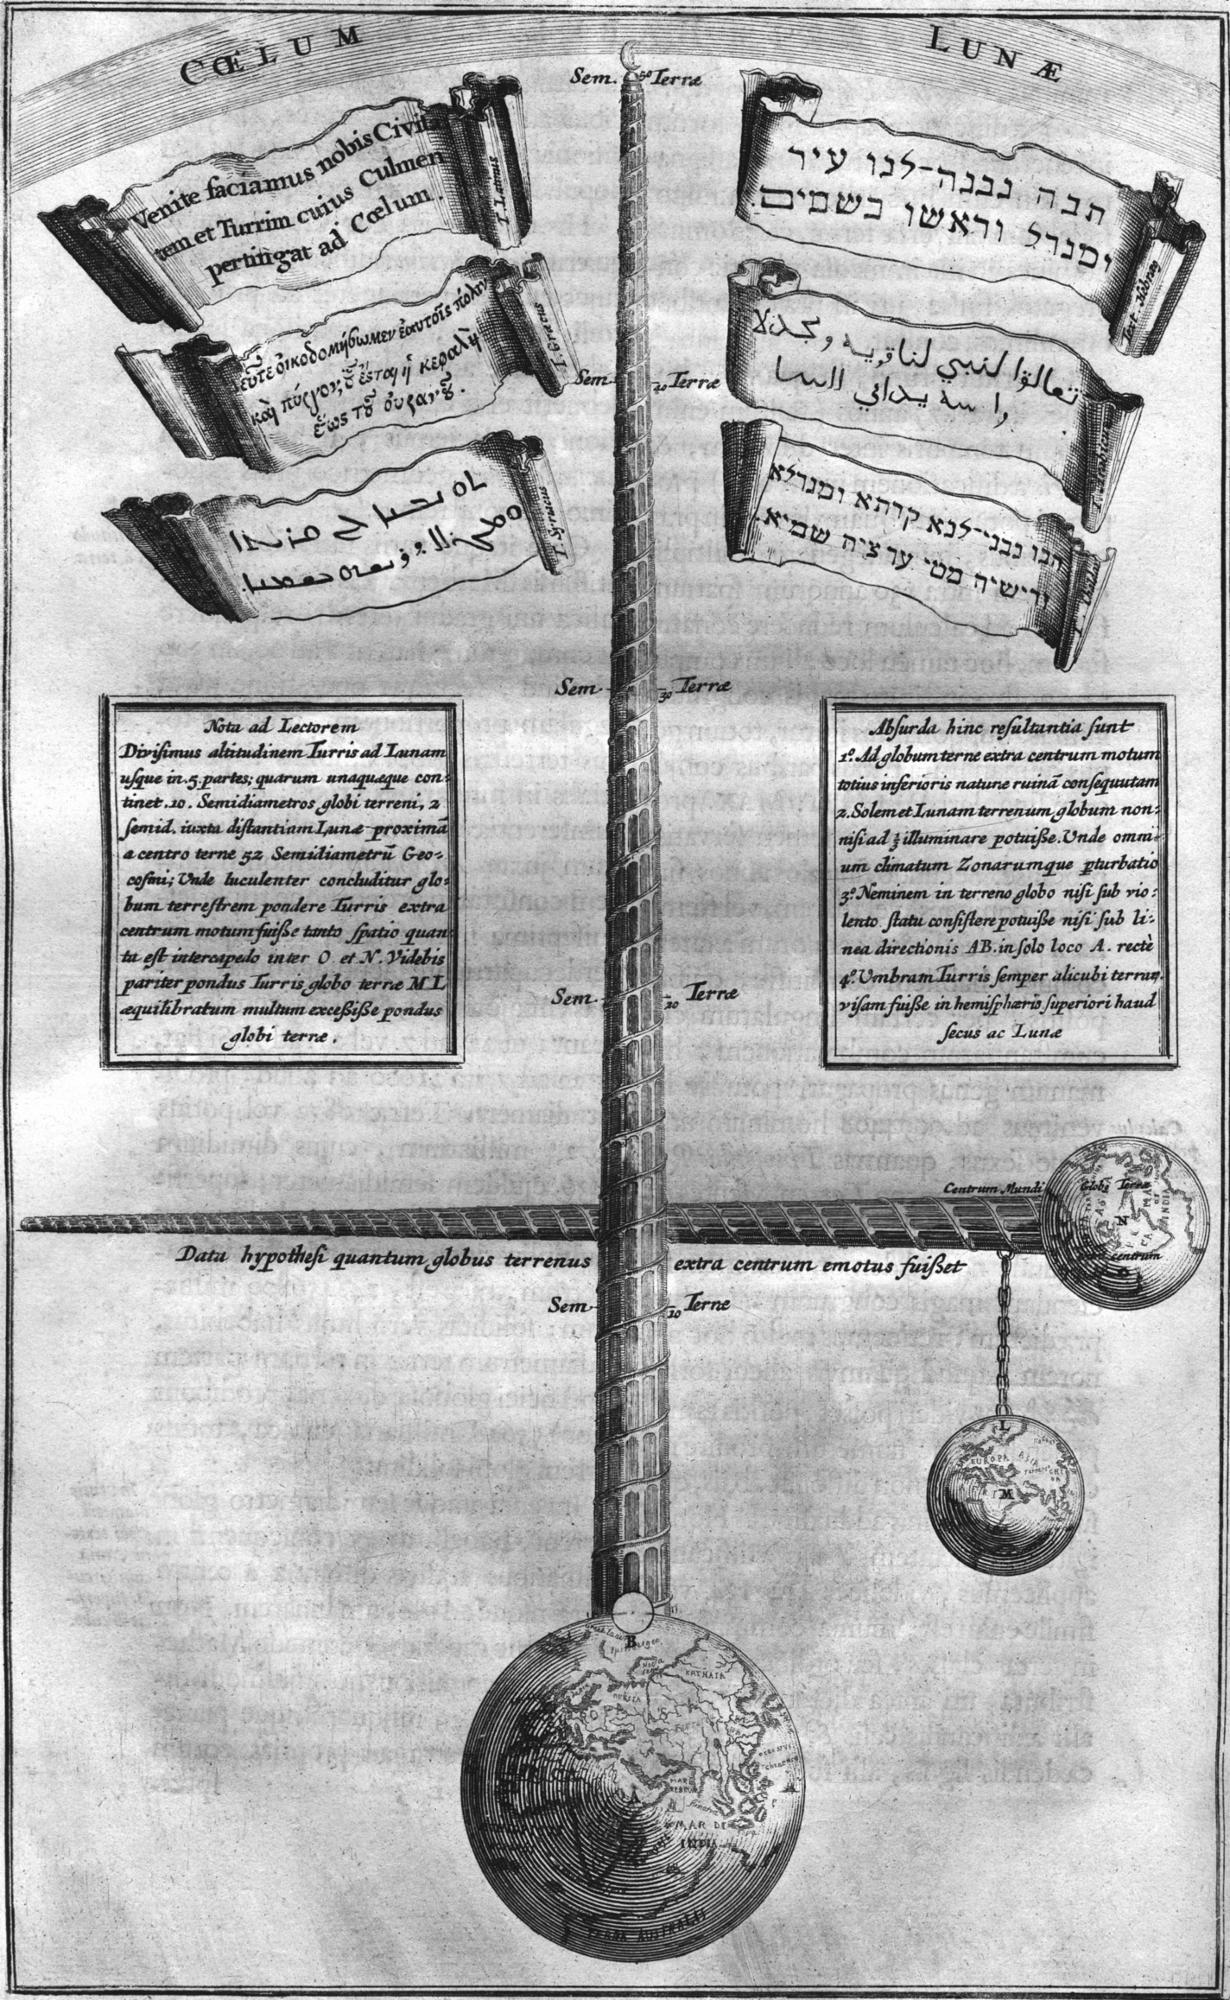 CŒLUM LUNÆ
Sem. 50 Terræ
Venite faciamus nobis Civita
tem et Turrim cuius Culmen
pertingat ad Cœlum.
T. Latinus
הבה נבנה-לנו עיר
ומגדל וראשו בשמים.
Text. Hebræo
δεῦτε οἰκοδομήσωμεν ἑαυτοῖς πόλιν
καὶ πύργον, οὗ ἔσται ἡ κεφαλὴ
ἕως τοῦ οὐρανοῦ.
T. Græcus
تعالوا لنبني لنا قريه ومجدلا
راسه يداني السما
T. Arabicus
Sem. 40 Terræ
T. Syriacus
הבו נבני-לנא קרתא ומגדלא
ורישיה מטי עד ציה שמיא.
Sem. 30 Terræ
Nota ad Lectorem
Divisimus altitudinem Turris ad Lunam
usque in .5. partes; quarum unaquæque con-
tinet .10. Semidiametros globi terreni, 2
semid. iuxta distantiam Lunæ proximā
a centro terræ 52 Semidiametrū Geo-
cosmi; Unde luculenter concluditur glo-
bum terrestrem pondere Turris extra
centrum motum fuisse tanto spatio quan
ta est intercapedo inter O et N. Videbis
pariter pondus Turris globo terræ ML
æquilibratum multum excessisse pondus
globi terræ.
Absurda hinc resultantia sunt
1.º Ad globum terræ extra centrum motum
totius inferioris naturæ ruinā consequutam
2. Solem et Lunam terrenum globum non-
nisi ad ½ illuminare potuisse. Unde omni-
um climatum Zonarumque pturbatio
3.º Neminem in terreno globo nisi sub vio-
lento statu consistere potuisse nisi sub li-
nea directionis AB. in solo loco A. rectè
4.º Umbram Turris semper alicubi terrarū
visam fuisse in hemisphæris superiori haud
secus ac Lunæ
Sem. 20 Terræ
Centrum Mundi
Globº Terræ
N
INDIA
extra centrum
O
Data hypothesi quantum globus terrenus extra centrum emotus fuisset
Sem. 10 Terræ
L
EUROPA ASIA
M
B
RUSSIA
KATHAIA
EUROPA ASIA
A
MAR DE
INDIA
TERRA AUSTRALIS